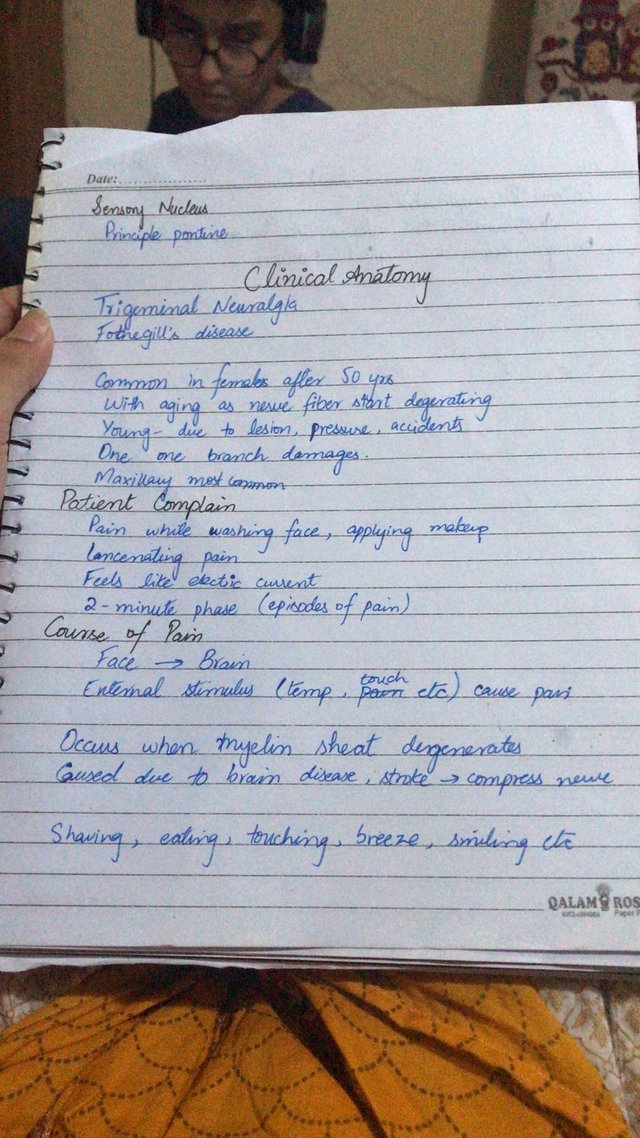 Date:..................
Sensory Nucleus
Principle pontine
Clinical Anatomy
Trigeminal Neuralgia
Fothegill's disease
Common in females after 50 yrs
With aging as nerve fiber start degerating
Young- due to lesion, pressure, accidents
One one branch damages.
Maxillary most common
Patient Complain
Pain while washing face, applying makeup
Lancenating pain
Feels like electic current
2-minute phase (episodes of pain)
Course of Pain
Face → Brain
External stimulus (temp, touch etc) cause pain
Occurs when myelin sheat degenerates
Caused due to brain disease, stroke → compress nerve
Shaving, eating, touching, breeze, smiling etc
QALAM ROS
Paper